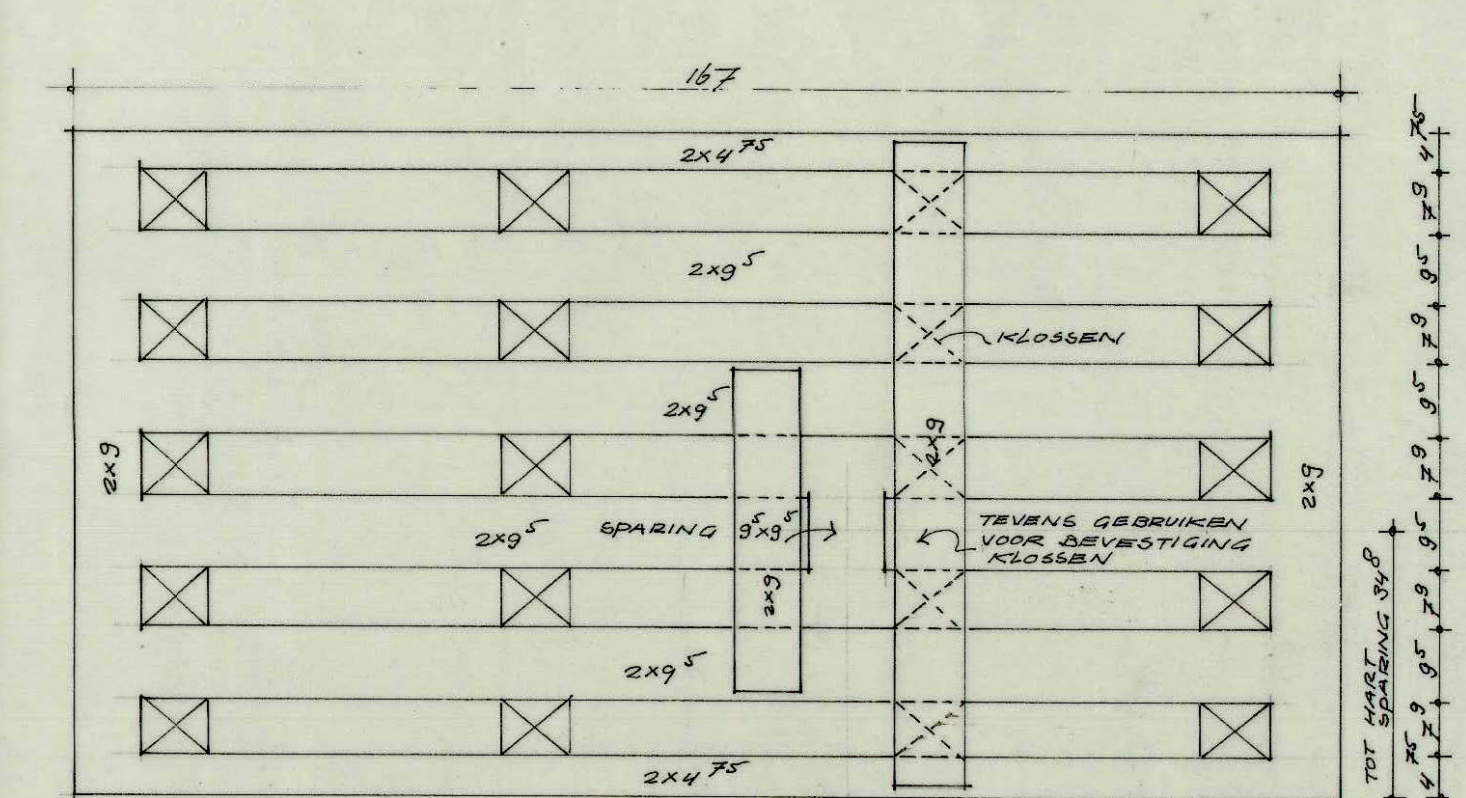 167
2×4⁷⁵
2×9⁵
KLOSSEN
2×9⁵
2×9
2×9
2×9
2×9⁵
SPARING 9⁵×9⁵
TEVENS GEBRUIKEN
VOOR BEVESTIGING
KLOSSEN
2×9
2×9⁵
2×4⁷⁵
TOT HART
SPARING 34⁸
4⁷⁵
7⁹
9⁵
7⁹
9⁵
7⁹
9⁵
7⁹
9⁵
7⁹
4⁷⁵